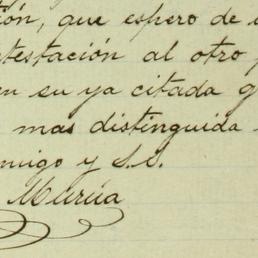 ión, que espero de
testación al otro
en su ya citada g
mas distinguida
amigo y S.S.
Murúa